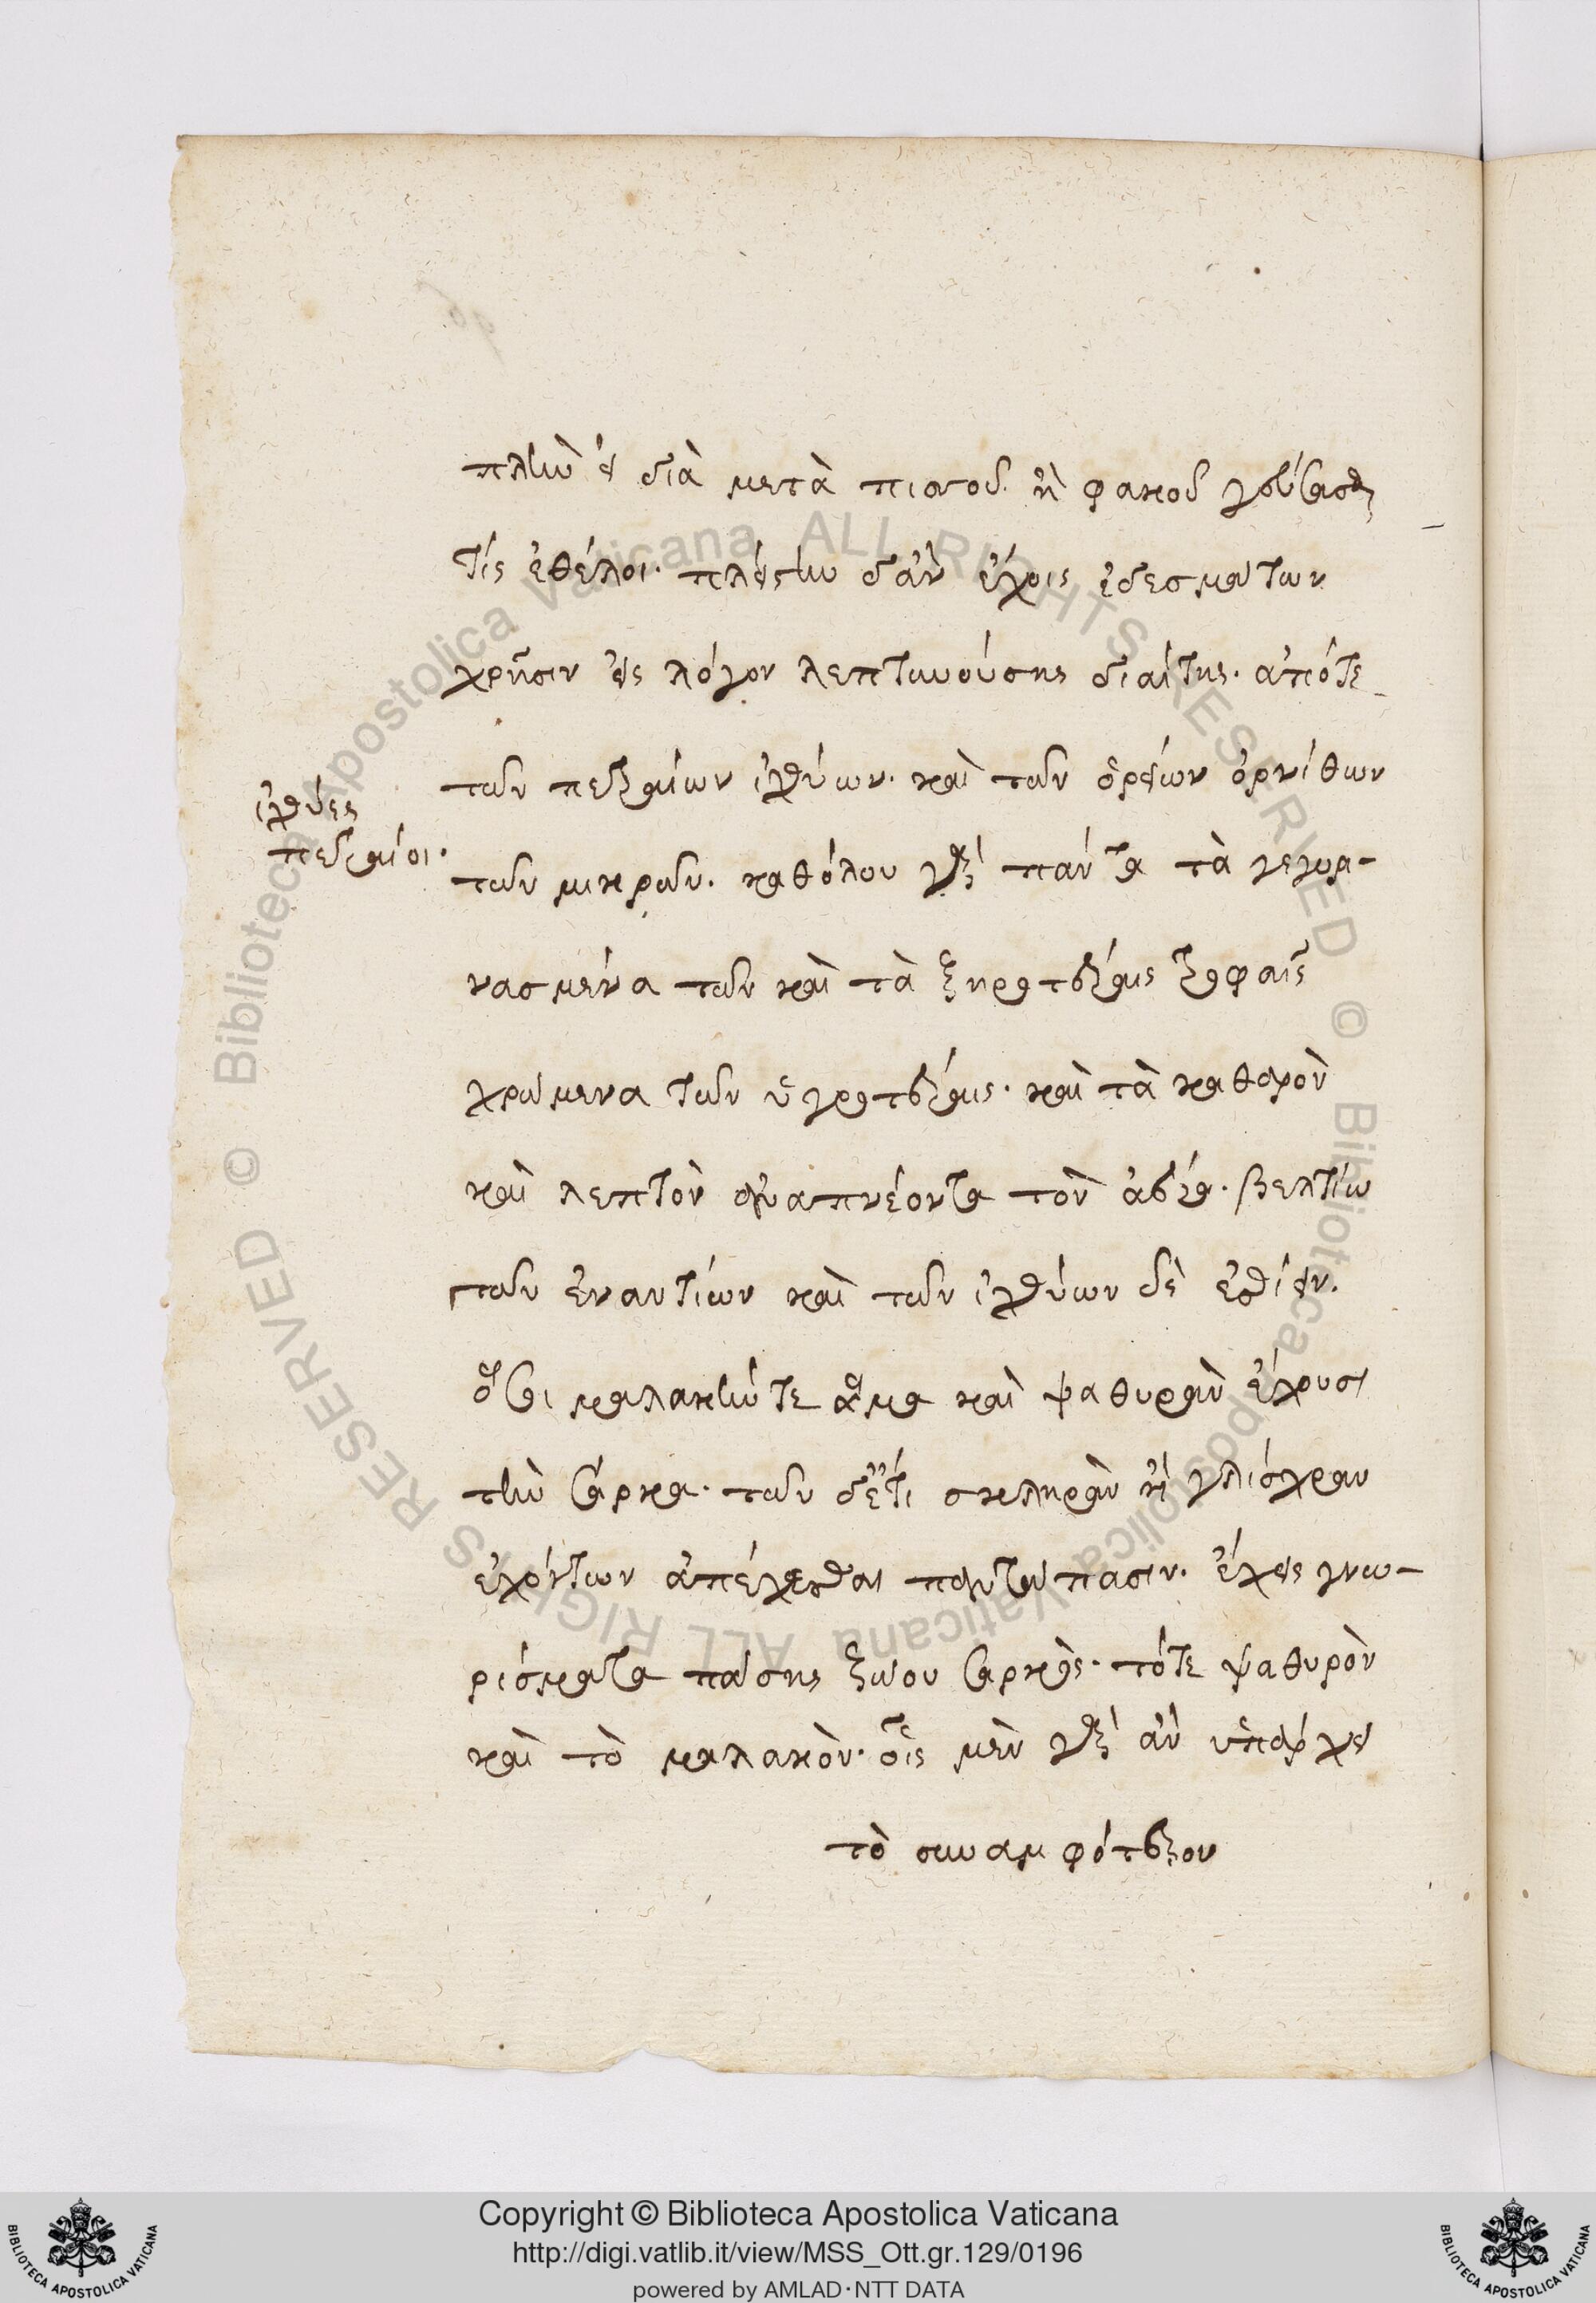 πλὴν εἰ διὰ μετὰ πισσοῦ ἢ φακοῦ γεύσασθαι
τίς ἐθέλοι. πλείστην δ' ἂν ἔχοις ἐδεσμάτων
χρῆσιν εἰς λόγον λεπτυνούσης διαίτης. ἀπό τε
τῶν πετραίων ἰχθύων. καὶ τῶν ὀρείων ὀρνίθων
ἰχθύες
πετραίοι.
τῶν μικρῶν. καθόλου γὰρ πάντα τὰ γεγυμ-
νασμένα τῶν καὶ τὰ ξηροτέραις τροφαῖς
χρώμενα τῶν ὑγροτέραις. καὶ τὰ καθαρὸν
καὶ λεπτὸν ἀναπνέοντα τὸν ἀέρα. βελτίω
τῶν ἐναντίων καὶ τῶν ἰχθύων δὲ ἐσθίειν.
ὅσοι μαλακήν τε ἅμα καὶ ψαθυρὰν ἔχουσι
τὴν σάρκα. τῶν δ' ἔτι σκληρὰν ἢ γλίσχραν
ἐχόντων ἀπέχεσθαι παντάπασιν. ἔχεις γνω-
ρίσματα πάσης ζώου σαρκός. τό τε ψαθυρὸν
καὶ τὸ μαλακὸν. οἷς μὲν γὰρ ἂν ὑπάρχει
τὸ συναμφότερον
Copyright © Biblioteca Apostolica Vaticana
http://digi.vatlib.it/view/MSS_Ott.gr.129/0196
powered by AMLAD·NTT DATA
BIBLIOTECA APOSTOLICA VATICANA
BIBLIOTECA APOSTOLICA VATICANA
© Biblioteca Apostolica Vaticana ALL RIGHTS RESERVED © Biblioteca Apostolica Vaticana ALL RIGHTS RESERVED